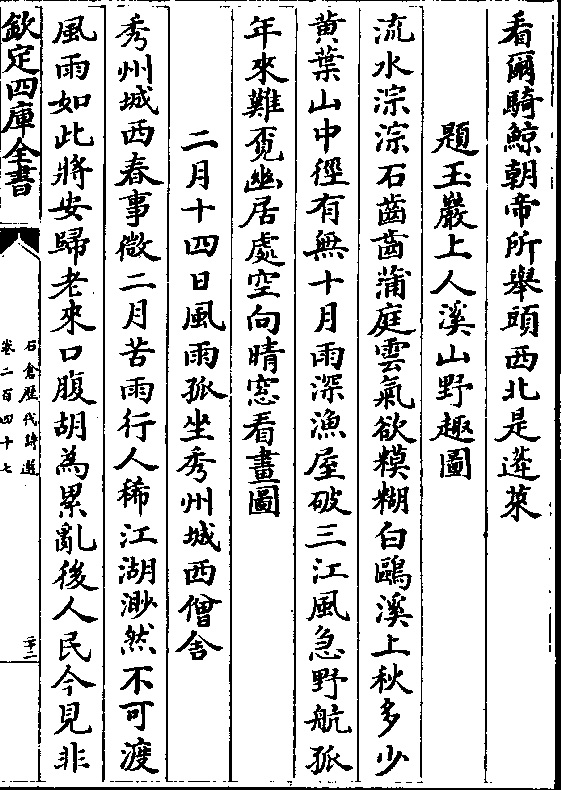 看爾騎鯨朝帝所舉頭西北是蓬萊
題玉巖上人溪山野趣圖
流水淙淙石齒齒蒲庭雲氣欲糢糊白鷗溪上秋多少
黄葉山中徑有無十月雨深漁屋破三江風急野航孤
年來難覔幽居處空向晴窓看畫圖
二月十四日風雨孤坐秀州城西僧舎
秀州城西春事微二月苦雨行人稀江湖渺然不可渡
風雨如此將安歸老來口腹胡為累亂後人民今見非
欽定四庫全書
石倉歴代詩選
卷二百四十七
二十二